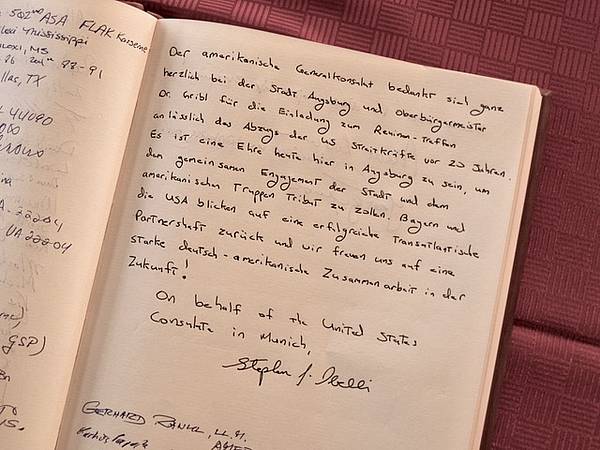 502nd ASA FLAK Kaserne
Mississippi
Biloxi, MS
88-91
Dallas, TX
44090
VA 22204
GSP)
Der amerikanische Generalkonsulat bedankt sich ganz
herzlich bei der Stadt Augsburg und Oberbürgermeister
Dr. Gribl für die Einladung zum Reunion-Treffen
anlässlich das Abzugs der US Streitkräfte vor 20 Jahren.
Es ist eine Ehre heute hier in Augsburg zu sein, um
dem gemeinsamen Engagement der Stadt und dem
amerikanischen Truppen Tribut zu zollen. Bayern und
die USA blicken auf eine erfolgreiche Transatlantische
Partnershaft zurück und wir freuen uns auf eine
starke deutsch-amerikanische Zusammenarbeit in der
Zukunft!
On behalf of the United States
Consulate in Munich,
Stephen J. Ibelli
GERHARD